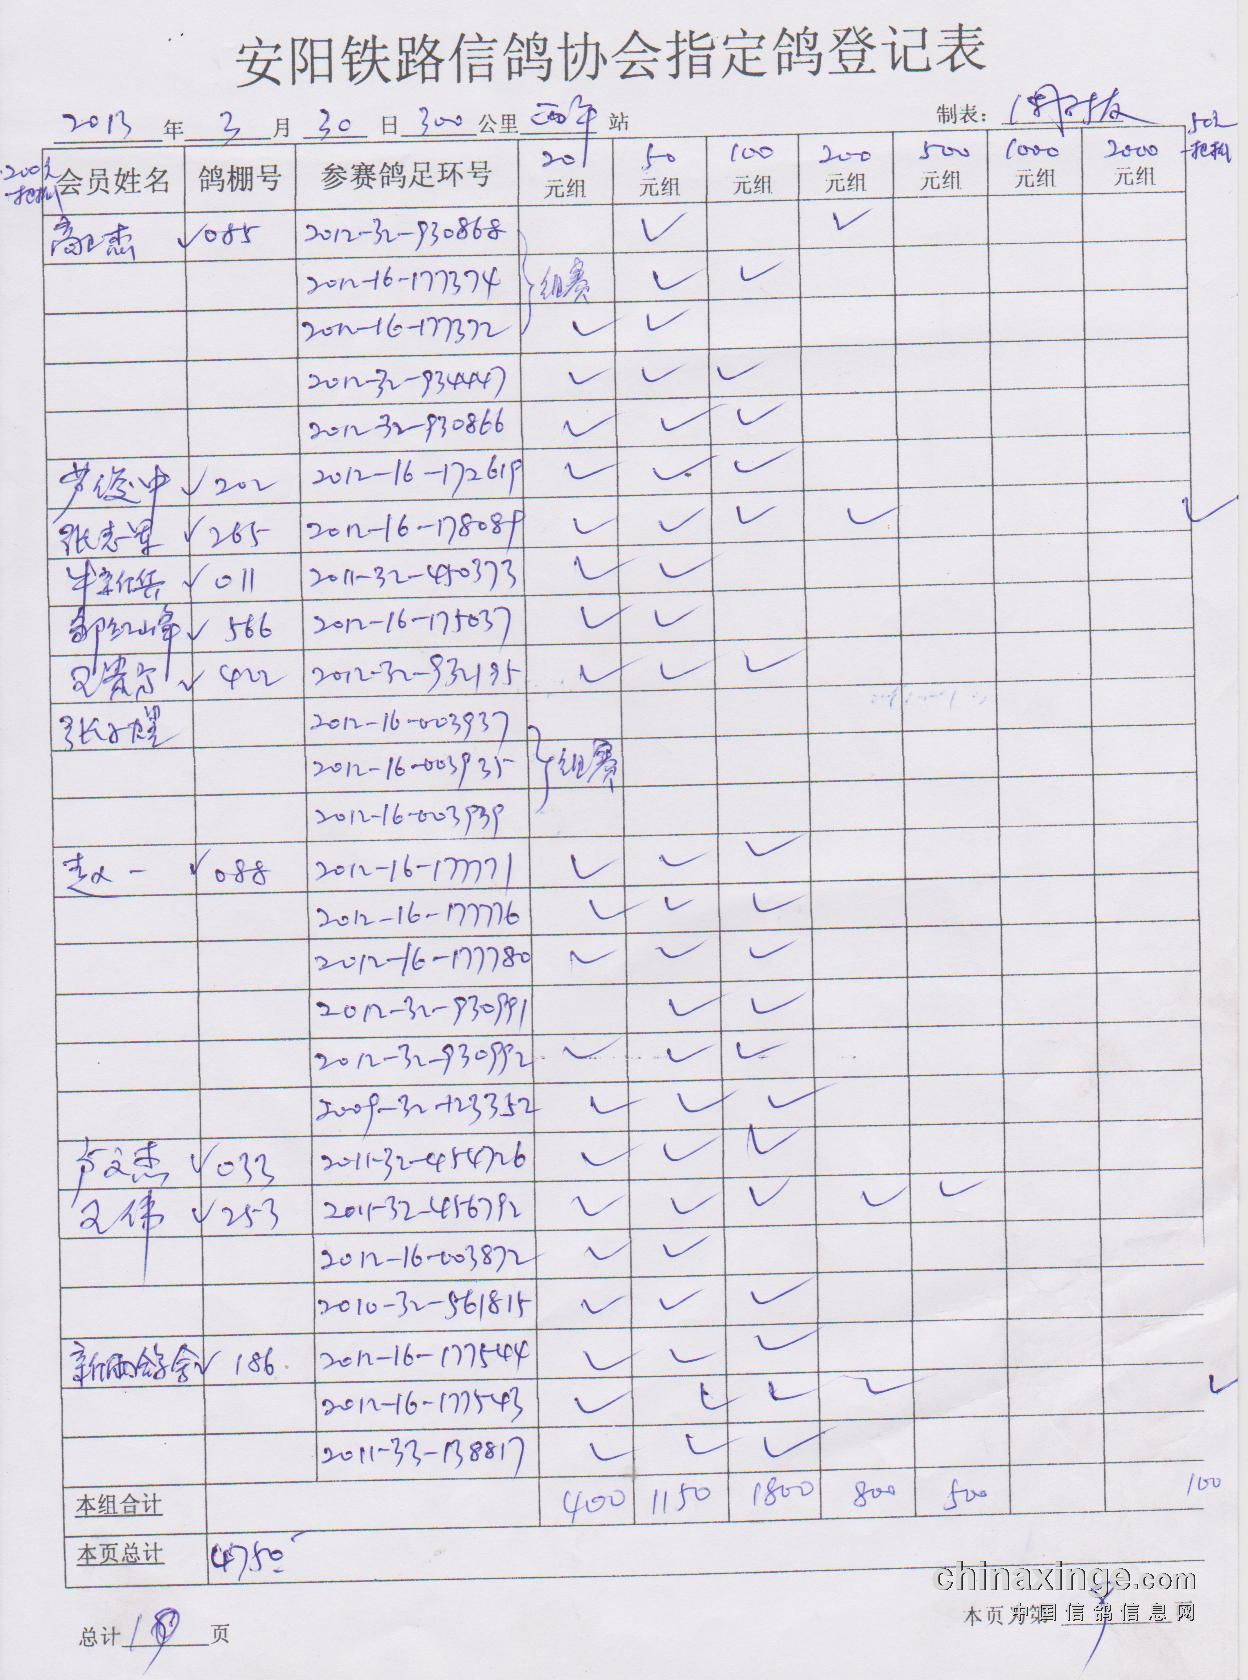 安阳铁路信鸽协会指定鸽登记表
2013年3月30日300公里 西平 站 制表：
会员姓名 鸽棚号 参赛鸽足环号 20元组 50元组 100元组 200元组 500元组 1000元组 2000元组 50元
✓085 2012-32-930868 ✓ ✓
2012-16-177374 组赛 ✓ ✓
2012-16-177372 ✓ ✓
2012-32-934447 ✓ ✓ ✓
2012-32-930866 ✓ ✓ ✓
✓202 2012-16-172619 ✓ ✓ ✓
张志军 ✓265 2012-16-178089 ✓ ✓ ✓ ✓ ✓
✓011 2011-32-450373 ✓ ✓
✓566 2012-16-175037 ✓ ✓
✓422 2012-32-932195 ✓ ✓ ✓
2012-16-003937
2012-16-003935 组赛
2012-16-003939
赵文一 ✓088 2012-16-177771 ✓ ✓ ✓
2012-16-177776 ✓ ✓ ✓
2012-16-177780 ✓ ✓ ✓
2012-32-930991 ✓ ✓
2012-32-930992 ✓ ✓ ✓
2009-32-123352 ✓ ✓ ✓
卢文杰 ✓033 2011-32-454726 ✓ ✓ ✓
✓253 2011-32-456792 ✓ ✓ ✓ ✓ ✓
2012-16-003872 ✓ ✓
2010-32-561815 ✓ ✓ ✓
✓186 2012-16-177544 ✓ ✓ ✓
2012-16-177543 ✓ ✓ ✓ ✓ ✓
2011-33-138817 ✓ ✓ ✓
本组合计 400 1150 1800 800 500 100
本页总计 4750
chinaxinge.com
中国信鸽信息网
总计 页 本页为第 页